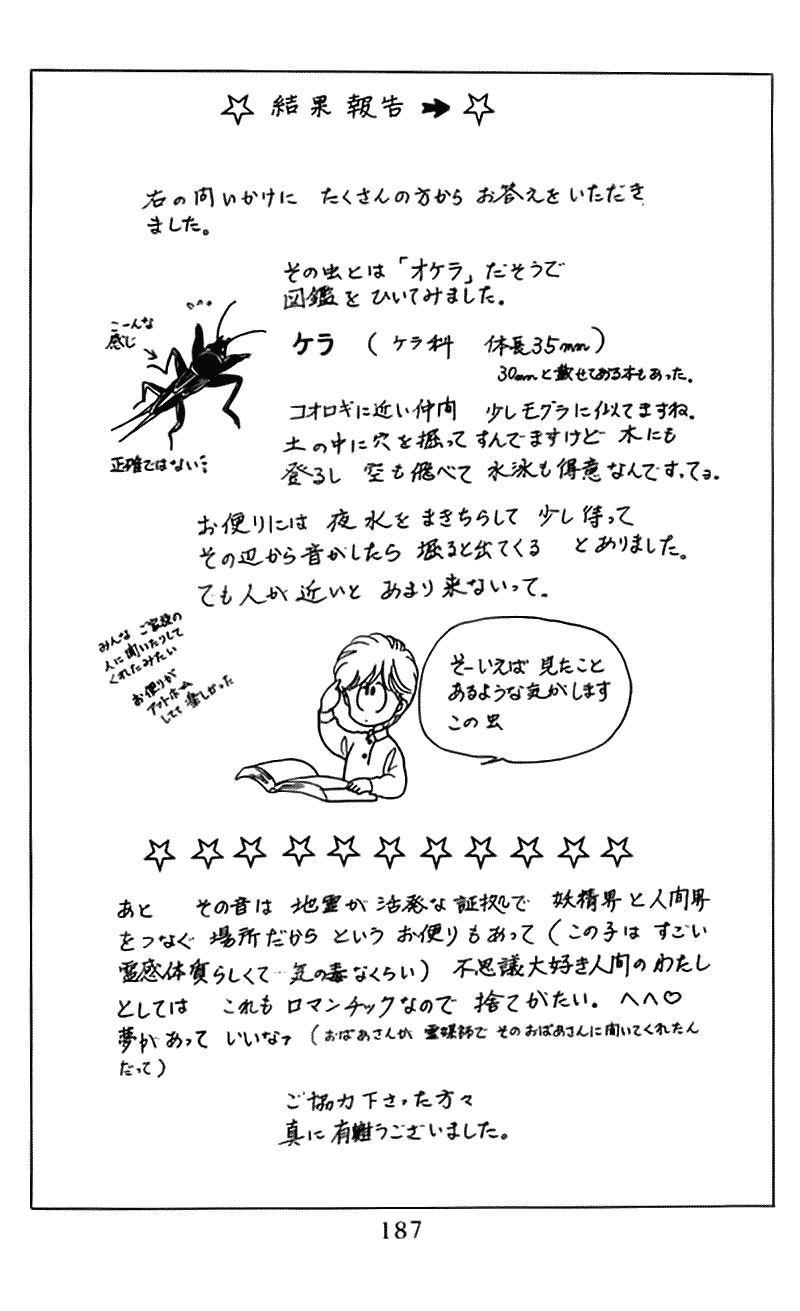 ☆ 結果報告 → ☆
右の問いかけに たくさんの方から お答えをいただき
ました。
その虫とは「オケラ」だそうで
図鑑を ひいてみました。
こーんな
感じ
ケラ ( ケラ科 体長35mm )
30mmと載せてある本もあった。
コオロギに近い仲間 少しモグラに似てますね。
土の中に穴を掘って すんでますけど 木にも
登るし 空も飛べて 水泳も得意なんですってョ。
正確ではない
お便りには 夜 水を まきちらして 少し待って
その辺から音がしたら 掘ると出てくる とありました。
でも人が近いと あまり来ないって。
みんな ご家族の
人に聞いたりして
くれたみたい
お便りが
アットホーム
してて 楽しかった
そーいえば 見たこと
あるような気がします
この虫
☆☆☆☆☆☆☆☆☆☆☆
あと その音は 地霊が活発な証拠で 妖精界と人間界
をつなぐ 場所だから という お便りもあって ( この子は すごい
霊感体質らしくて…気の毒なくらい ) 不思議大好き人間のわたし
としては これも ロマンチックなので 捨てがたい。ヘヘ♡
夢があって いいなァ ( おばあさんが 霊媒師で そのおばあさんに聞いてくれたん
だって )
ご協力下さった方々
真に有難うございました。
187